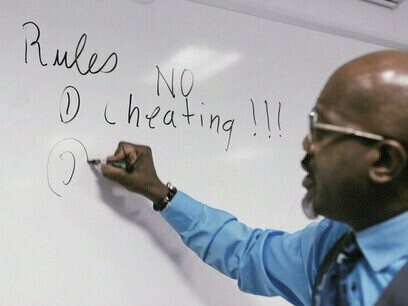 Rules
NO
① cheating !!!
②